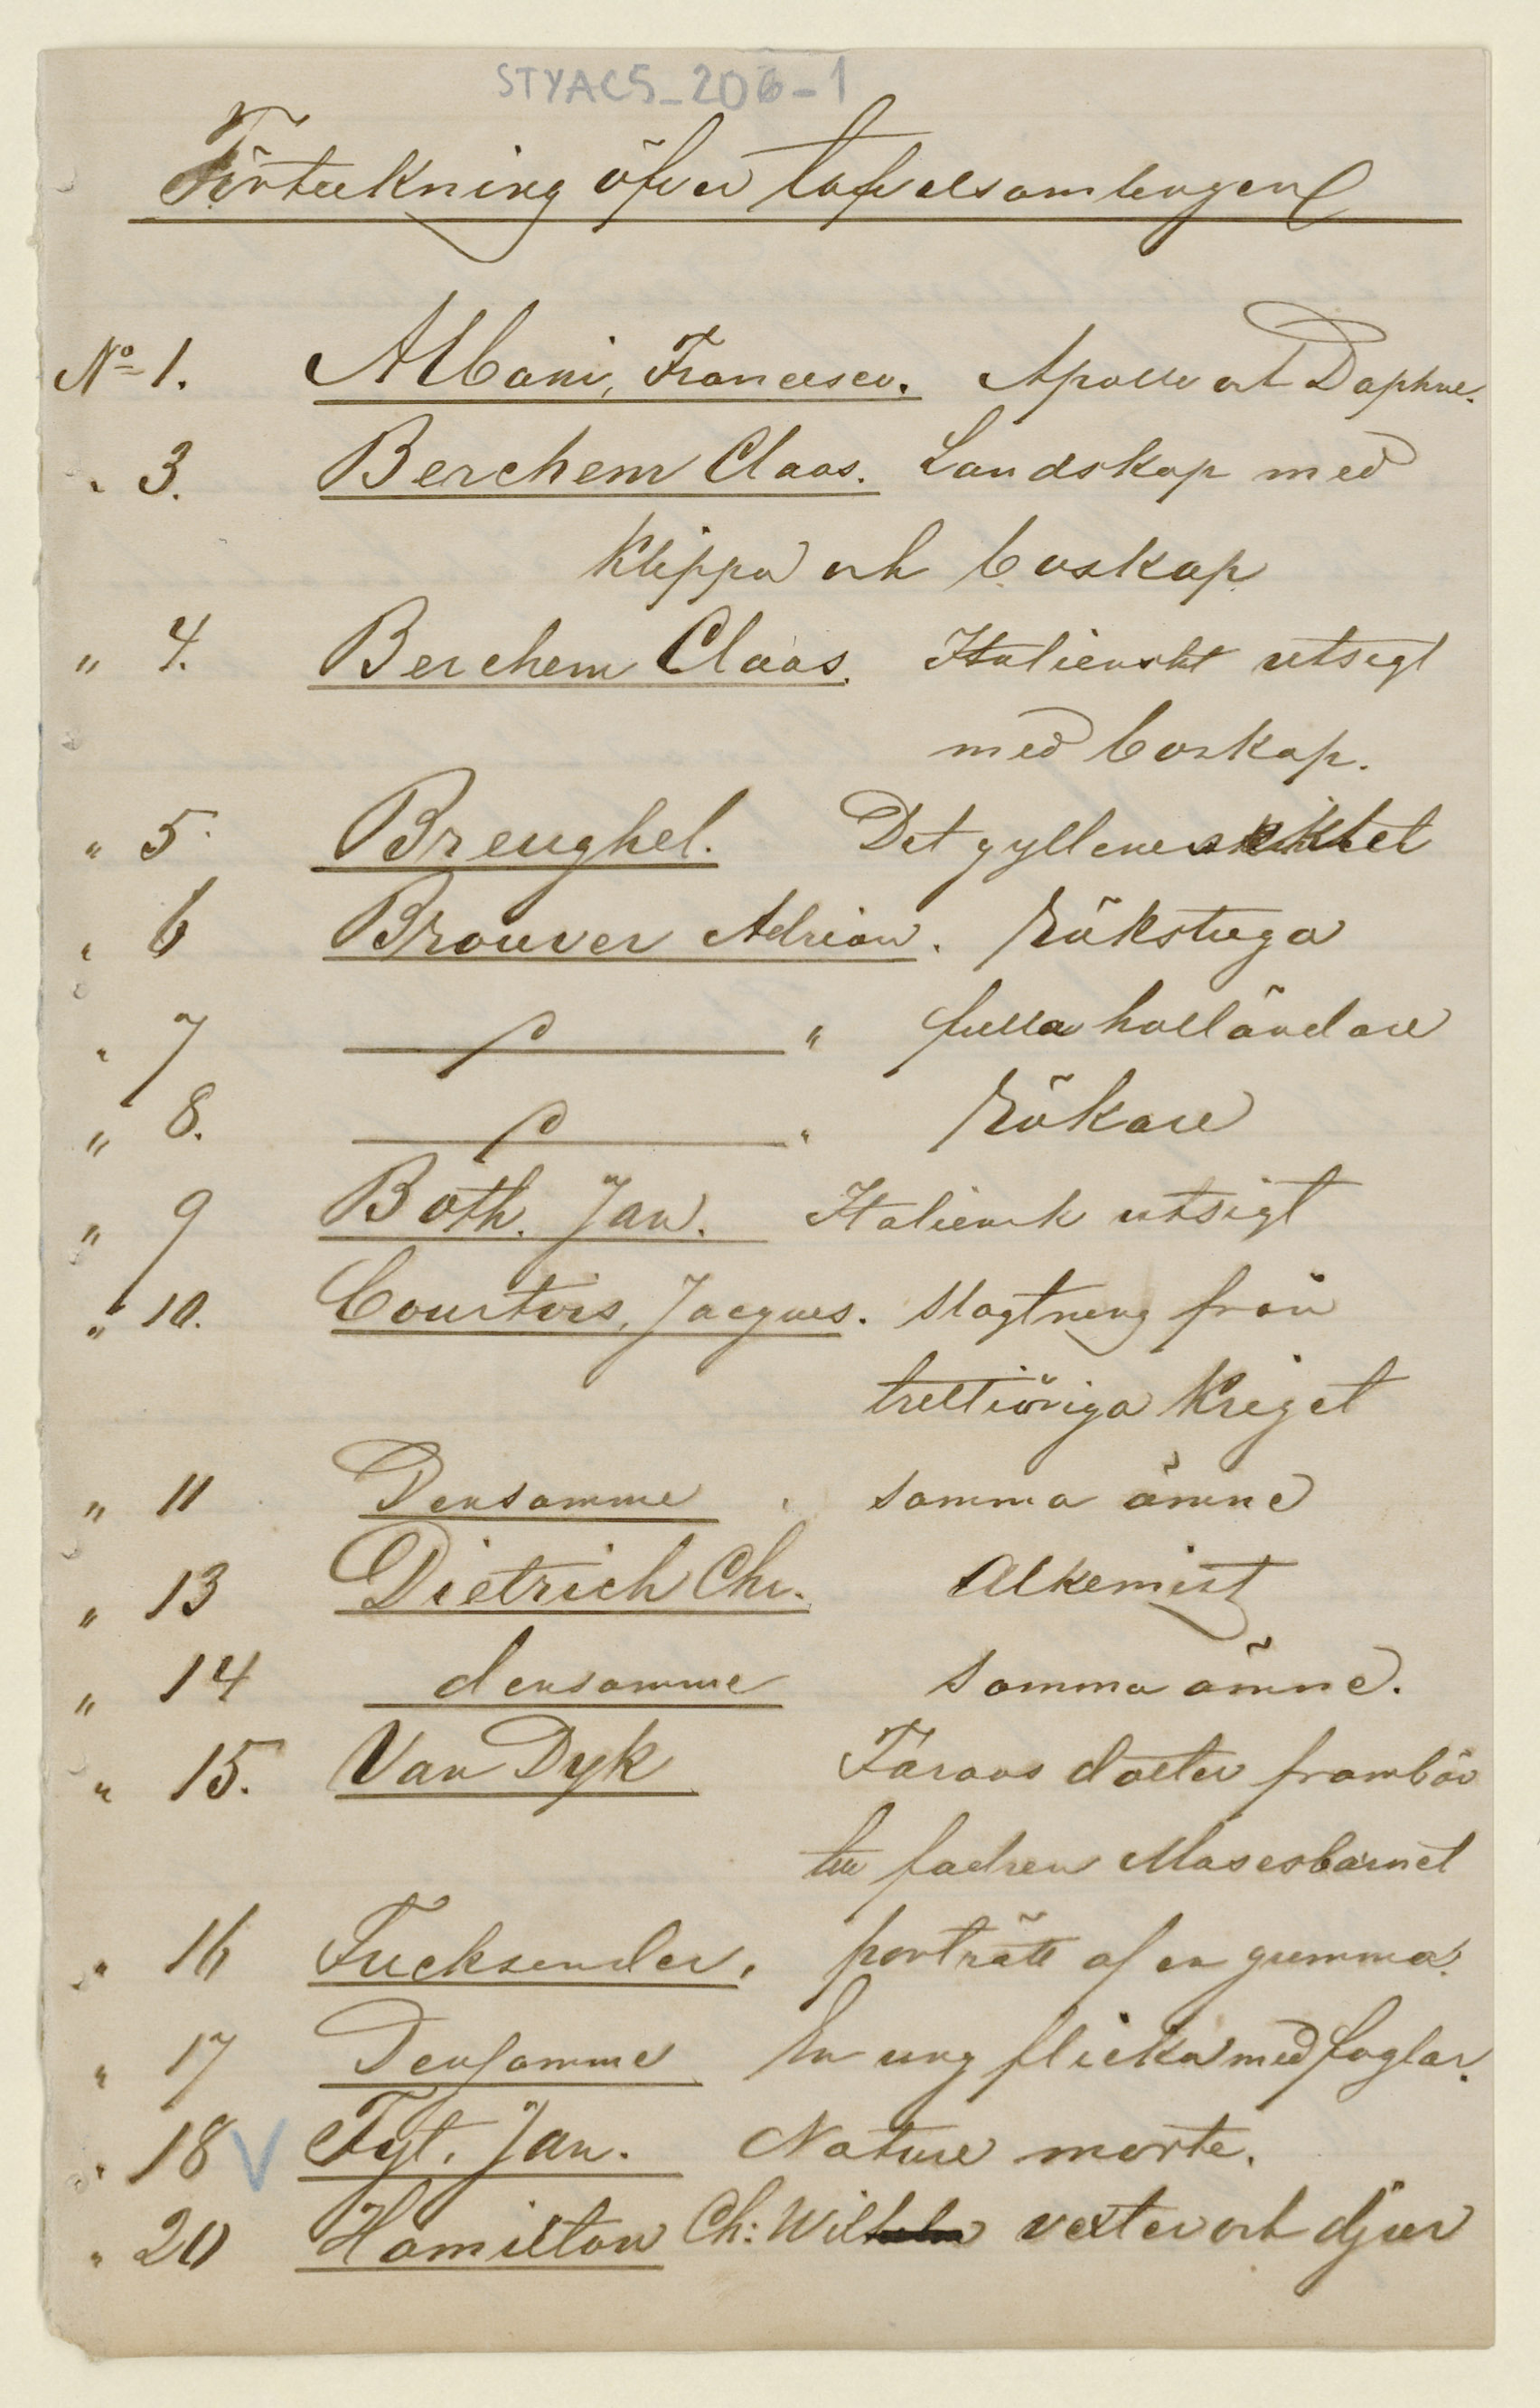 STYAC5_206-1
Förteckning öfver tafvelsamlingen
No 1. Albani, Francesco. Apollo och Daphne.
" 3. Berchem Claas. Landskap med
klippa och boskap
" 4. Berchem Claas. Italienskt utsigt
med boskap.
" 5 Breughel. Det gyllene
" 6 Brouver Adrian. Rökstuga
" 7 " fulla holländare
" 8. " Rökare
" 9 Both. Jan. Italiensk utsigt
" 10. Courtois, Jacques. Slagtning från
trettioåriga kriget
" 11 Densamme samma ämne
" 13 Dietrich Chr. Alkemist
" 14 densamme samma ämne.
" 15. Van Dyk Faraos dotter frambär
till fadren Mosesbarnet
" 16 porträtt af en gumma.
" 17 Densamme En ung flicka med foglar.
" 18 V Fyt. Jan. Nature morte.
" 20 Hamilton Ch: Wilhelm vexter och djur